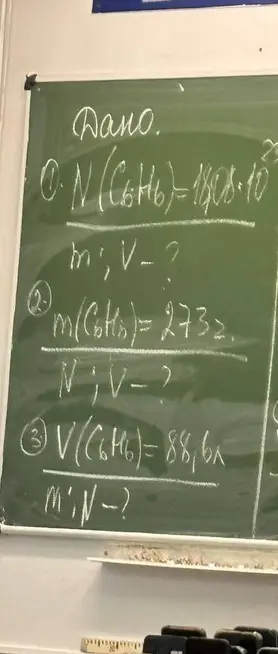 Дано.
①. N(C₆H₆)=18,08·10²³
m; V-?
②. m(C₆H₆)=273г.
N; V-?
③ V(C₆H₆)=88,6л
m; N-?